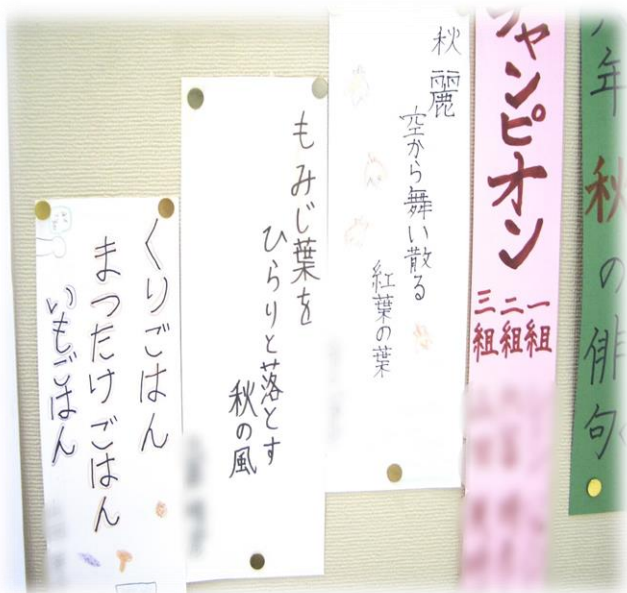 年 秋の俳句
チャンピオン
一組
二組
三組
秋麗
空から舞い散る
紅葉の葉
もみじ葉を
ひらりと落とす
秋の風
くりごはん
まつたけごはん
いもごはん